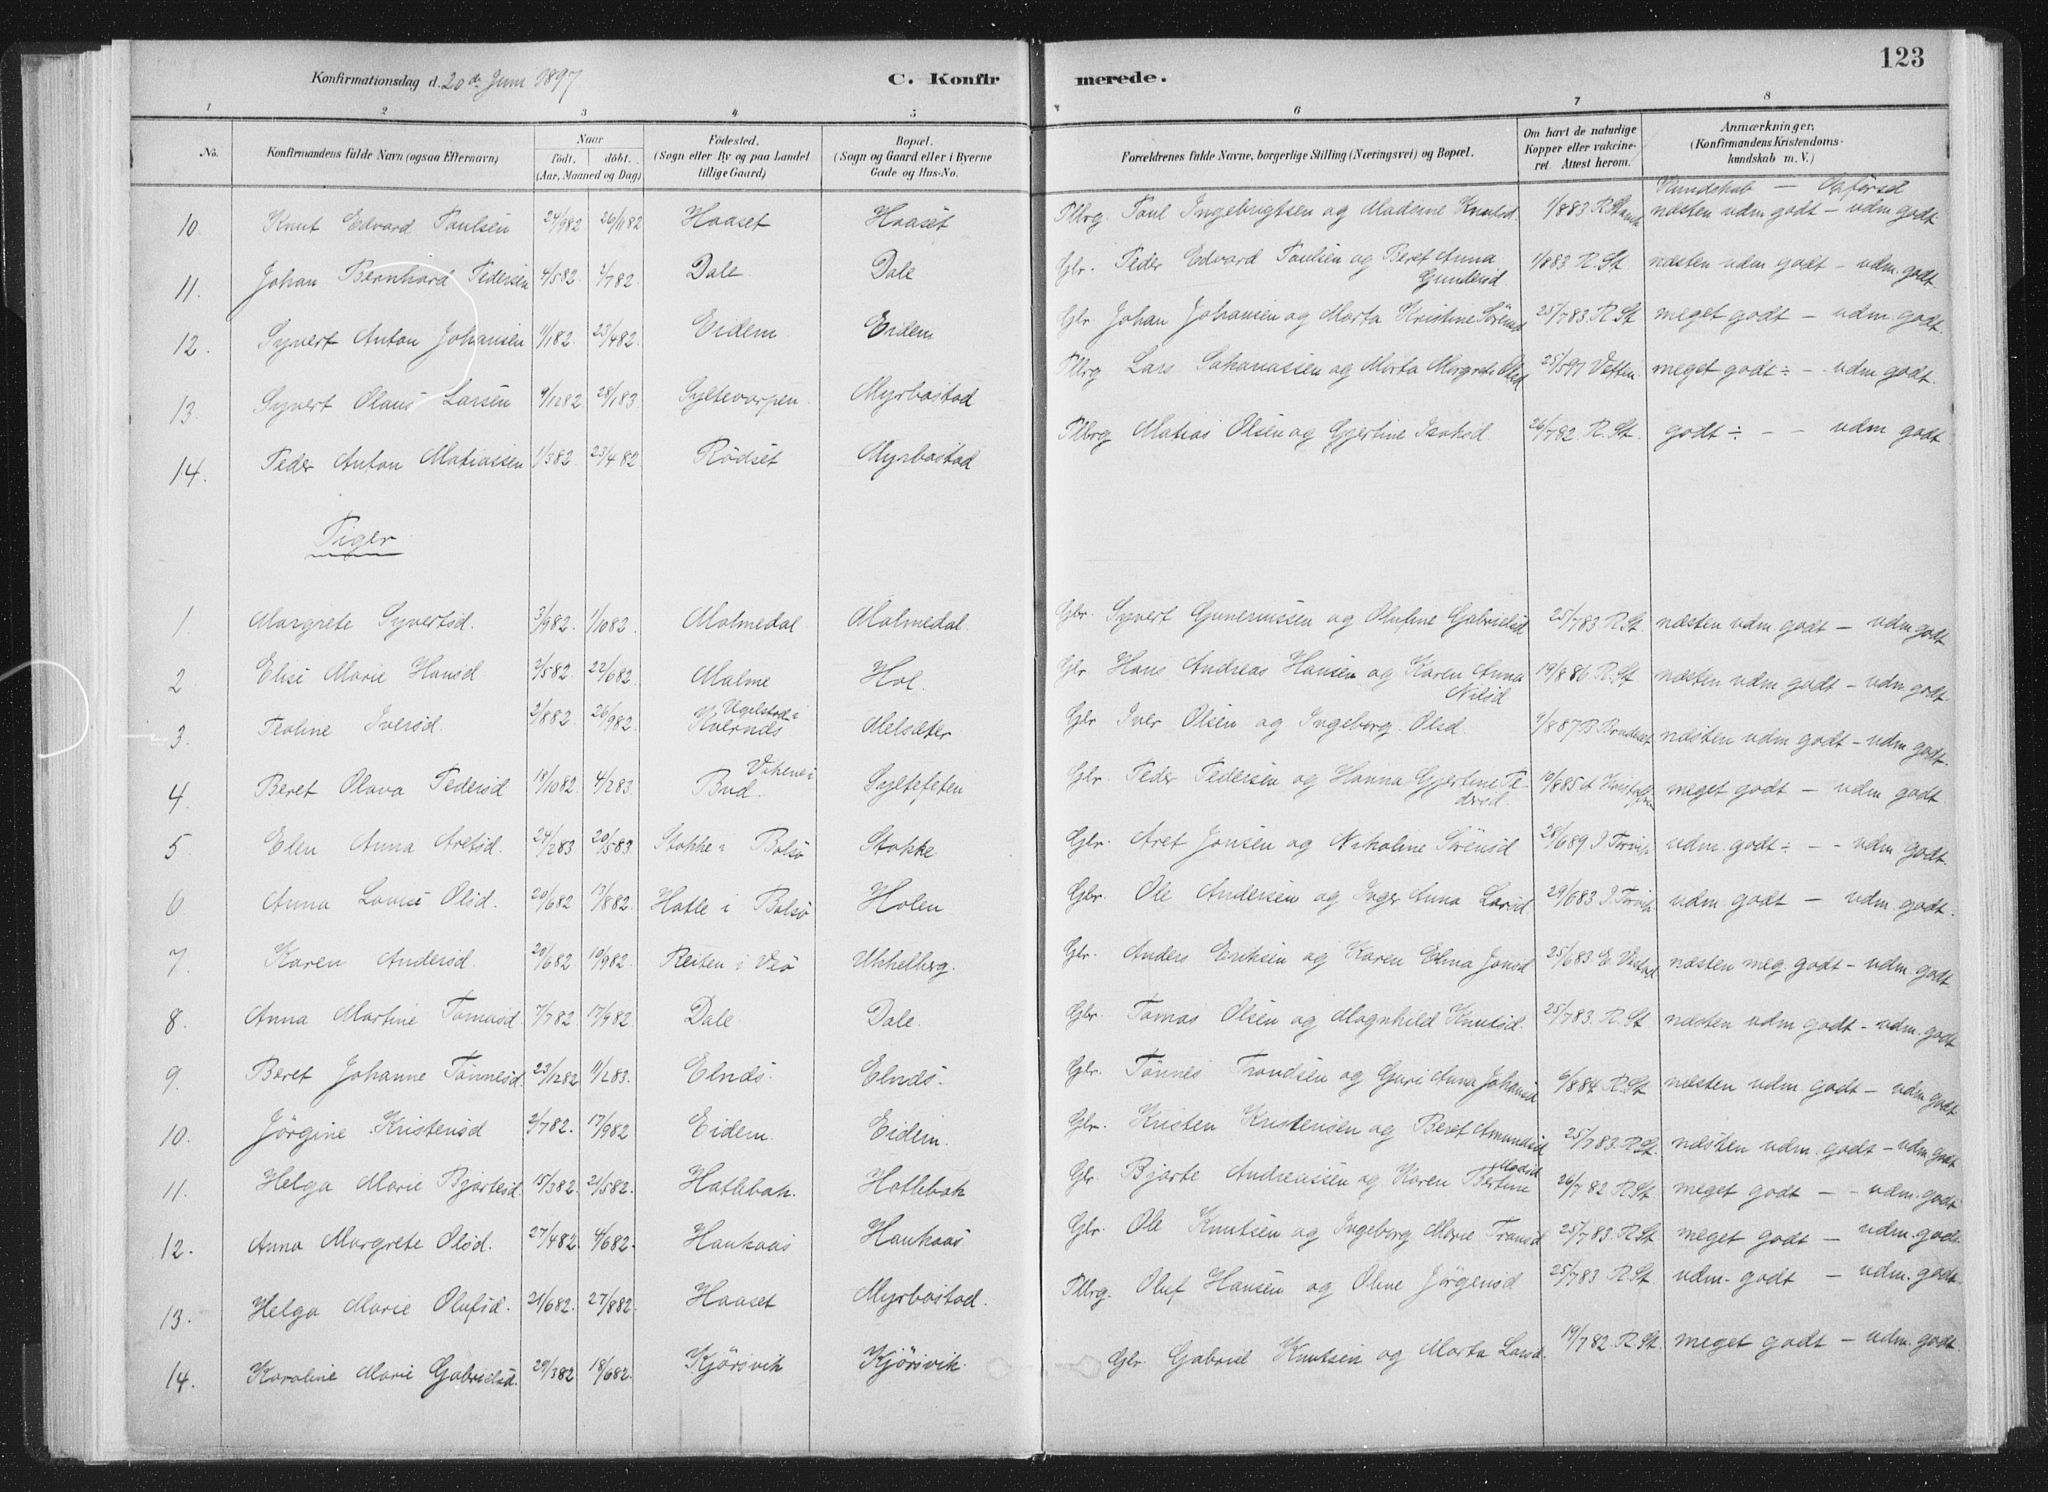 123
Konfirmationsdag d. 20de Juni 1897 C. Konfirmerede.
1 2 3 4 5 6 7 8
No. Konfirmandens fulde Navn (ogsaa Efternavn) Naar født. døbt. (Aar, Maaned og Dag) Fødested. (Sogn eller By og paa Landet tillige Gaard) Bopæl. (Sogn og Gaard eller i Byerne Gade og Hus-No. Forældrenes fulde Navne, borgerlige Stilling (Næringsvei) og Bopæl. Om havt de naturlige Kopper eller vakcineret. Attest herom. Anmærkninger. (Konfirmandens Kristendomskundskab m. V.)
Kundskab — Opførsel
10. Knut Edvard Paulsen 24/982 26/1182 Haaset Haaset Pllbrg. Paul Ingebrigtsen og Maderne Knutsd. 1/883 R. næsten udm godt — udm. godt
11. Johan Bernhard Pedersen 4/582 2/782. Dale Dale Gbr. Peder Edvard Paulsen og Beret Anna Gundersd. 1/883 R. St. næsten udm. godt — udm. godt.
12. Syvert Anton Johansen 1/182. 23/482. Eidem Eidem Gbr. Johan Johansen og Marta Kristine Sørensd. 25/783. R. St. meget godt — udm. godt.
13. Syvert Olaus Larsen 9/1282 28/183 Syltevarpen. Myrbostad Pllbrg Lars Johanassen og Marta Margrete Olsd. 25/597 Vetten. meget godt ÷ — udm. godt.
14. Peder Anton Matiassen 1/382. 23/482 Rødset Myrbostad Pllbrg Matias Olsen og Gjertine Isaksd. 26/782 R. St. godt ÷ — — udm godt
Piger
1. Margrete Syvertsd. 3/982. 1/1082. Malmedal. Malmedal. Gbr. Syvert Gunerussen og Olufine Gabrielsd 25/783 R. St. næsten udm. godt — udm. godt
2. Elise Marie Hansd 2/582. 22/682. Malme Hol. Gbr. Hans Andreas Hansen og Karen Anna Nilsd 19/886 R. St næsten udm. godt — udm. godt.
3. Paline Iversd. 2/882 26/982. Ugelstad i Kvernes Melsæter Gbr Iver Olsen og Ingeborg Olsd. 9/887 næsten udm godt — udm. godt.
4. Beret Olava Pedersd 18/1082. 4/283. Vikene i Bud. Syltefeten Gbr. Peder Pedersen og Hanna Gjertine Pedersd. 10/885 meget godt — udm. godt.
5. Elen Anna Aretsd. 24/283 20/583 Stokke i Bolsø Stokke Gbr. Aret Jonsen og Nikoline Sørensd 28/689 J. Torvik. udm. godt ÷ — — udm. godt
6 Anna Lovise Olsd. 20/682 13/882. Hatle i Bolsø Holen Gbr. Ole Andersen og Inger Anna Larsd. 29/683 J. Torvik. udm. godt — udm. godt.
7. Karen Andersd. 20/682. 10/982. Reiten i Veø Mikelberg. Gbr. Anders Eriksen og Karen Elina Jonsd 25/683 E. næsten meg. godt — udm. godt
8. Anna Martine Tomasd. 7/782. 17/982. Dale. Dale. Gbr. Tomas Olsen og Magnhild Knutsd. 25/783. R. St. næsten udm godt — udm. godt
9. Beret Johanne Tønnesd. 23/1282 11/283. Elnes. Elnes. Gbr. Tønnes Trondsen og Guri Anna Johansd 6/884 R. St næsten udm. godt — udm. godt
10. Jørgine Kristensd 2/782. 17/982 Eidem. Eidem. Gbr. Kristen Kristensen og Beret Amundsd 25/783. R. St. næsten udm. godt — udm. godt
11. Helga Marie Bjartesd. 15/382. 21/582. Hatlebak. Hatlebak Gbr. Bjarte Andreassen og Karen Bertine Madsd 26/782 R. St meget godt — — udm. godt
12. Anna Margrete Olsd. 27/482. 4/682. Haukaas Haukaas Gbr. Ole Knutsen og Ingeborg Marie Fransd 25/783. R. St meget godt — udm. godt.
13. Helga Marie Olufsd. 21/682. 27/882. Haaset Myrbostad. Pllbrg. Oluf Hansen og Oline Jørgensd 25/783 R. St. udm. godt — udm. godt.
14. Karoline Marie Gabrielsd. 29/382 18/682. Kjørsvik Kjørsvik. Gbr. Gabriel Knutsen og Marta Larsd. 19/782. R. St. meget godt — udm. godt.